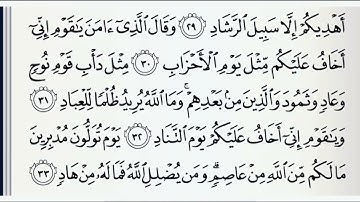 أَهْدِيكُمْ إِلَّا سَبِيلَ ٱلرَّشَادِ ٢٩ وَقَالَ ٱلَّذِىٓ ءَامَنَ يَـٰقَوْمِ إِنِّىٓ
أَخَافُ عَلَيْكُم مِّثْلَ يَوْمِ ٱلْأَحْزَابِ ٣٠ مِثْلَ دَأْبِ قَوْمِ نُوحٍ
وَعَادٍ وَثَمُودَ وَٱلَّذِينَ مِنۢ بَعْدِهِمْ ۚ وَمَا ٱللَّهُ يُرِيدُ ظُلْمًا لِّلْعِبَادِ ٣١
وَيَـٰقَوْمِ إِنِّىٓ أَخَافُ عَلَيْكُمْ يَوْمَ ٱلتَّنَادِ ٣٢ يَوْمَ تُوَلُّونَ مُدْبِرِينَ
مَا لَكُم مِّنَ ٱللَّهِ مِنْ عَاصِمٍ ۗ وَمَن يُضْلِلِ ٱللَّهُ فَمَا لَهُۥ مِنْ هَادٍ ٣٣